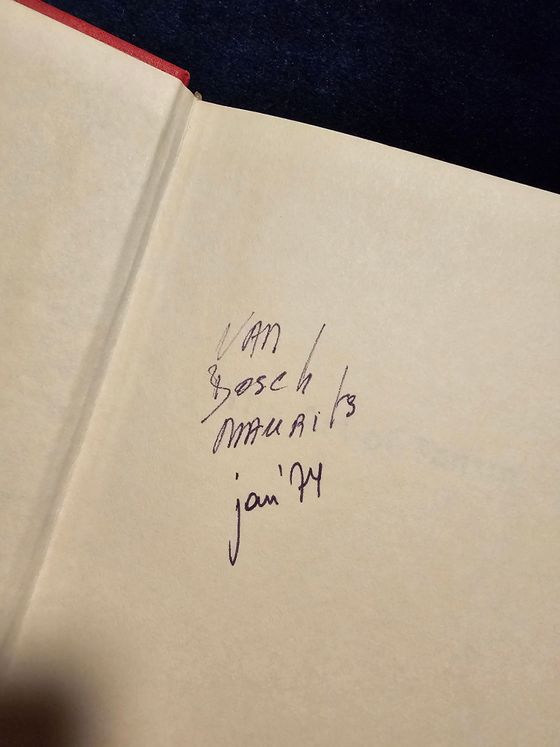 VAN
Bosch
MAURits
jan '74